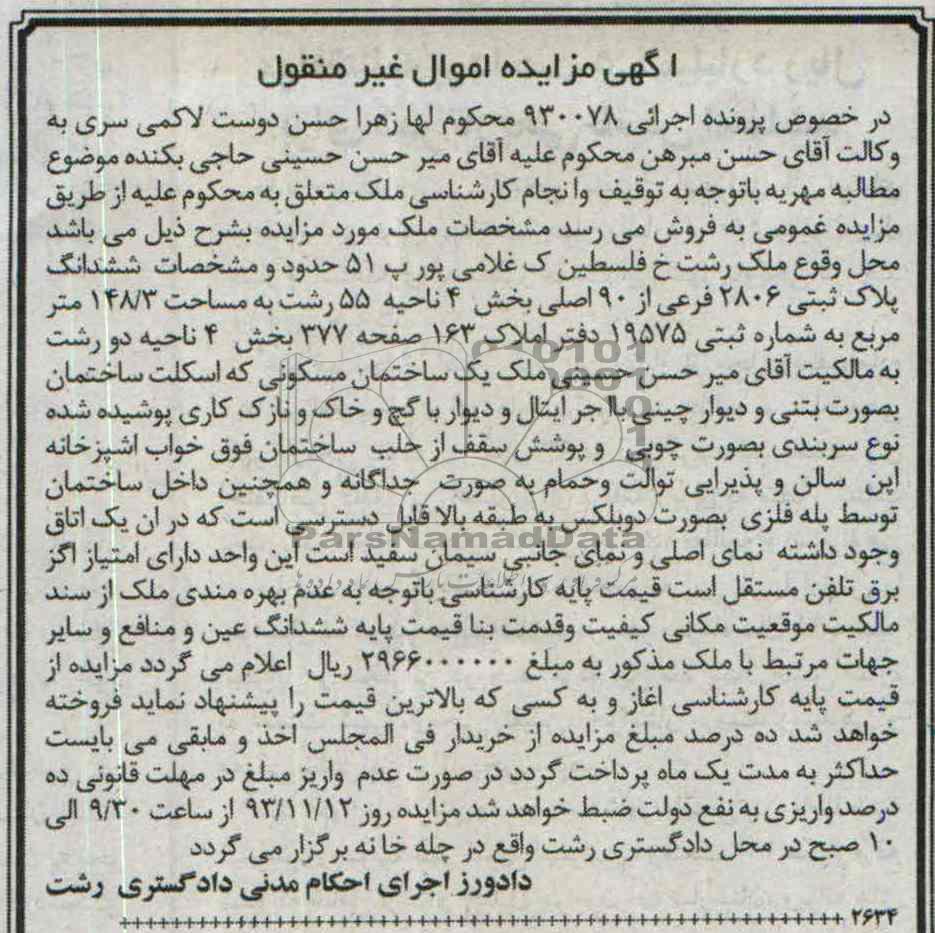 اگهی مزایده اموال غیر منقول
در خصوص پرونده اجرائی ۹۳۰۰۷۸ محکوم لها زهرا حسن دوست لاکمی سری به
وکالت آقای حسن مبرهن محکوم علیه آقای میر حسن حسینی حاجی بکنده موضوع
مطالبه مهریه باتوجه به توقیف وانجام کارشناسی ملک متعلق به محکوم علیه از طریق
مزایده غمومی به فروش می رسد مشخصات ملک مورد مزایده بشرح ذیل می باشد
محل وقوع ملک رشت خ فلسطین ک غلامی پور پ ۵۱ حدود و مشخصات ششدانگ
پلاک ثبتی ۲۸۰۶ فرعی از ۹۰ اصلی بخش ۴ ناحیه ۵۵ رشت به مساحت ۱۴۸/۳ متر
مربع به شماره ثبتی ۱۹۵۷۵ دفتر املاک ۱۶۳ صفحه ۳۷۷ بخش ۴ ناحیه دو رشت
به مالکیت آقای میر حسن حسینی ملک یک ساختمان مسکونی که اسکلت ساختمان
بصورت بتنی و دیوار چینی باا جر ایتال و دیوار با گچ و خاک و نازک کاری پوشیده شده
نوع سربندی بصورت چوبی و پوشش سقف از حلب ساختمان فوق خواب اشپزخانه
اپن سالن و پذیرایی توالت وحمام به صورت جداگانه و همچنین داخل ساختمان
توسط پله فلزی بصورت دوبلکس به طبقه بالا قابل دسترسی است که در ان یک اتاق
وجود داشته نمای اصلی و نمای جانبی سیمان سفید است این واحد دارای امتیاز اگز
برق تلفن مستقل است قیمت پایه کارشناسی باتوجه به عدم بهره مندی ملک از سند
مالکیت موقعیت مکانی کیفیت وقدمت بنا قیمت پایه ششدانگ عین و منافع و سایر
جهات مرتبط با ملک مذکور به مبلغ ۲۹۶۶۰۰۰۰۰۰ ریال اعلام می گردد مزایده از
قیمت پایه کارشناسی اغاز و به کسی که بالاترین قیمت را پیشنهاد نماید فروخته
خواهد شد ده درصد مبلغ مزایده از خریدار فی المجلس اخذ و مابقی می بایست
حداکثر به مدت یک ماه پرداخت گردد در صورت عدم واریز مبلغ در مهلت قانونی ده
درصد واریزی به نفع دولت ضبط خواهد شد مزایده روز ۹۳/۱۱/۱۲ از ساعت ۹/۳۰ الی
۱۰ صبح در محل دادگستری رشت واقع در چله خا نه برگزار می گردد
دادورز اجرای احکام مدنی دادگستری رشت
۲۶۳۴
ParsNamadData